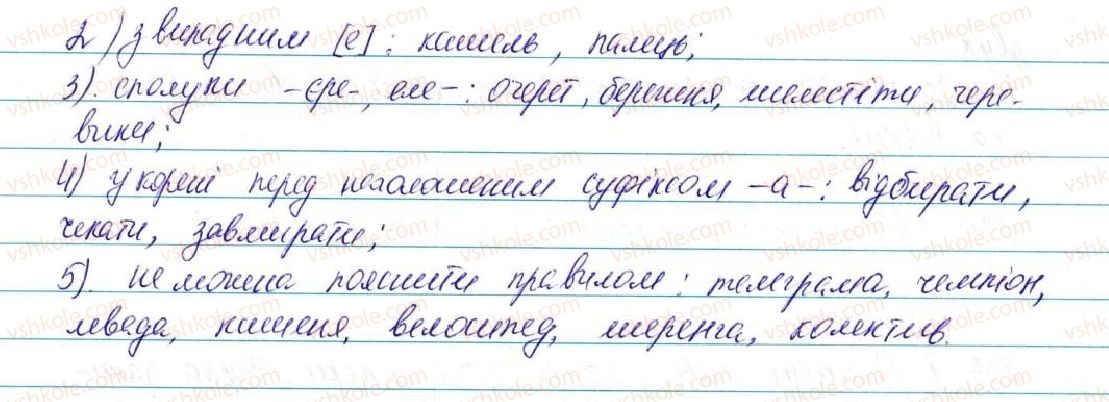 2) з випадним [е]: кашель, палець;
3). сполуки -ере-, еле-: очерет, береженя, шелестіти, чере-
вики;
4) у корені перед наголошеним суфіксом -а-: відбирати,
чекати, завмирати;
5). не можна пояснити правилом: телеграма, чемпіон,
левада, кишеня, велосипед, шеренга, колектив.